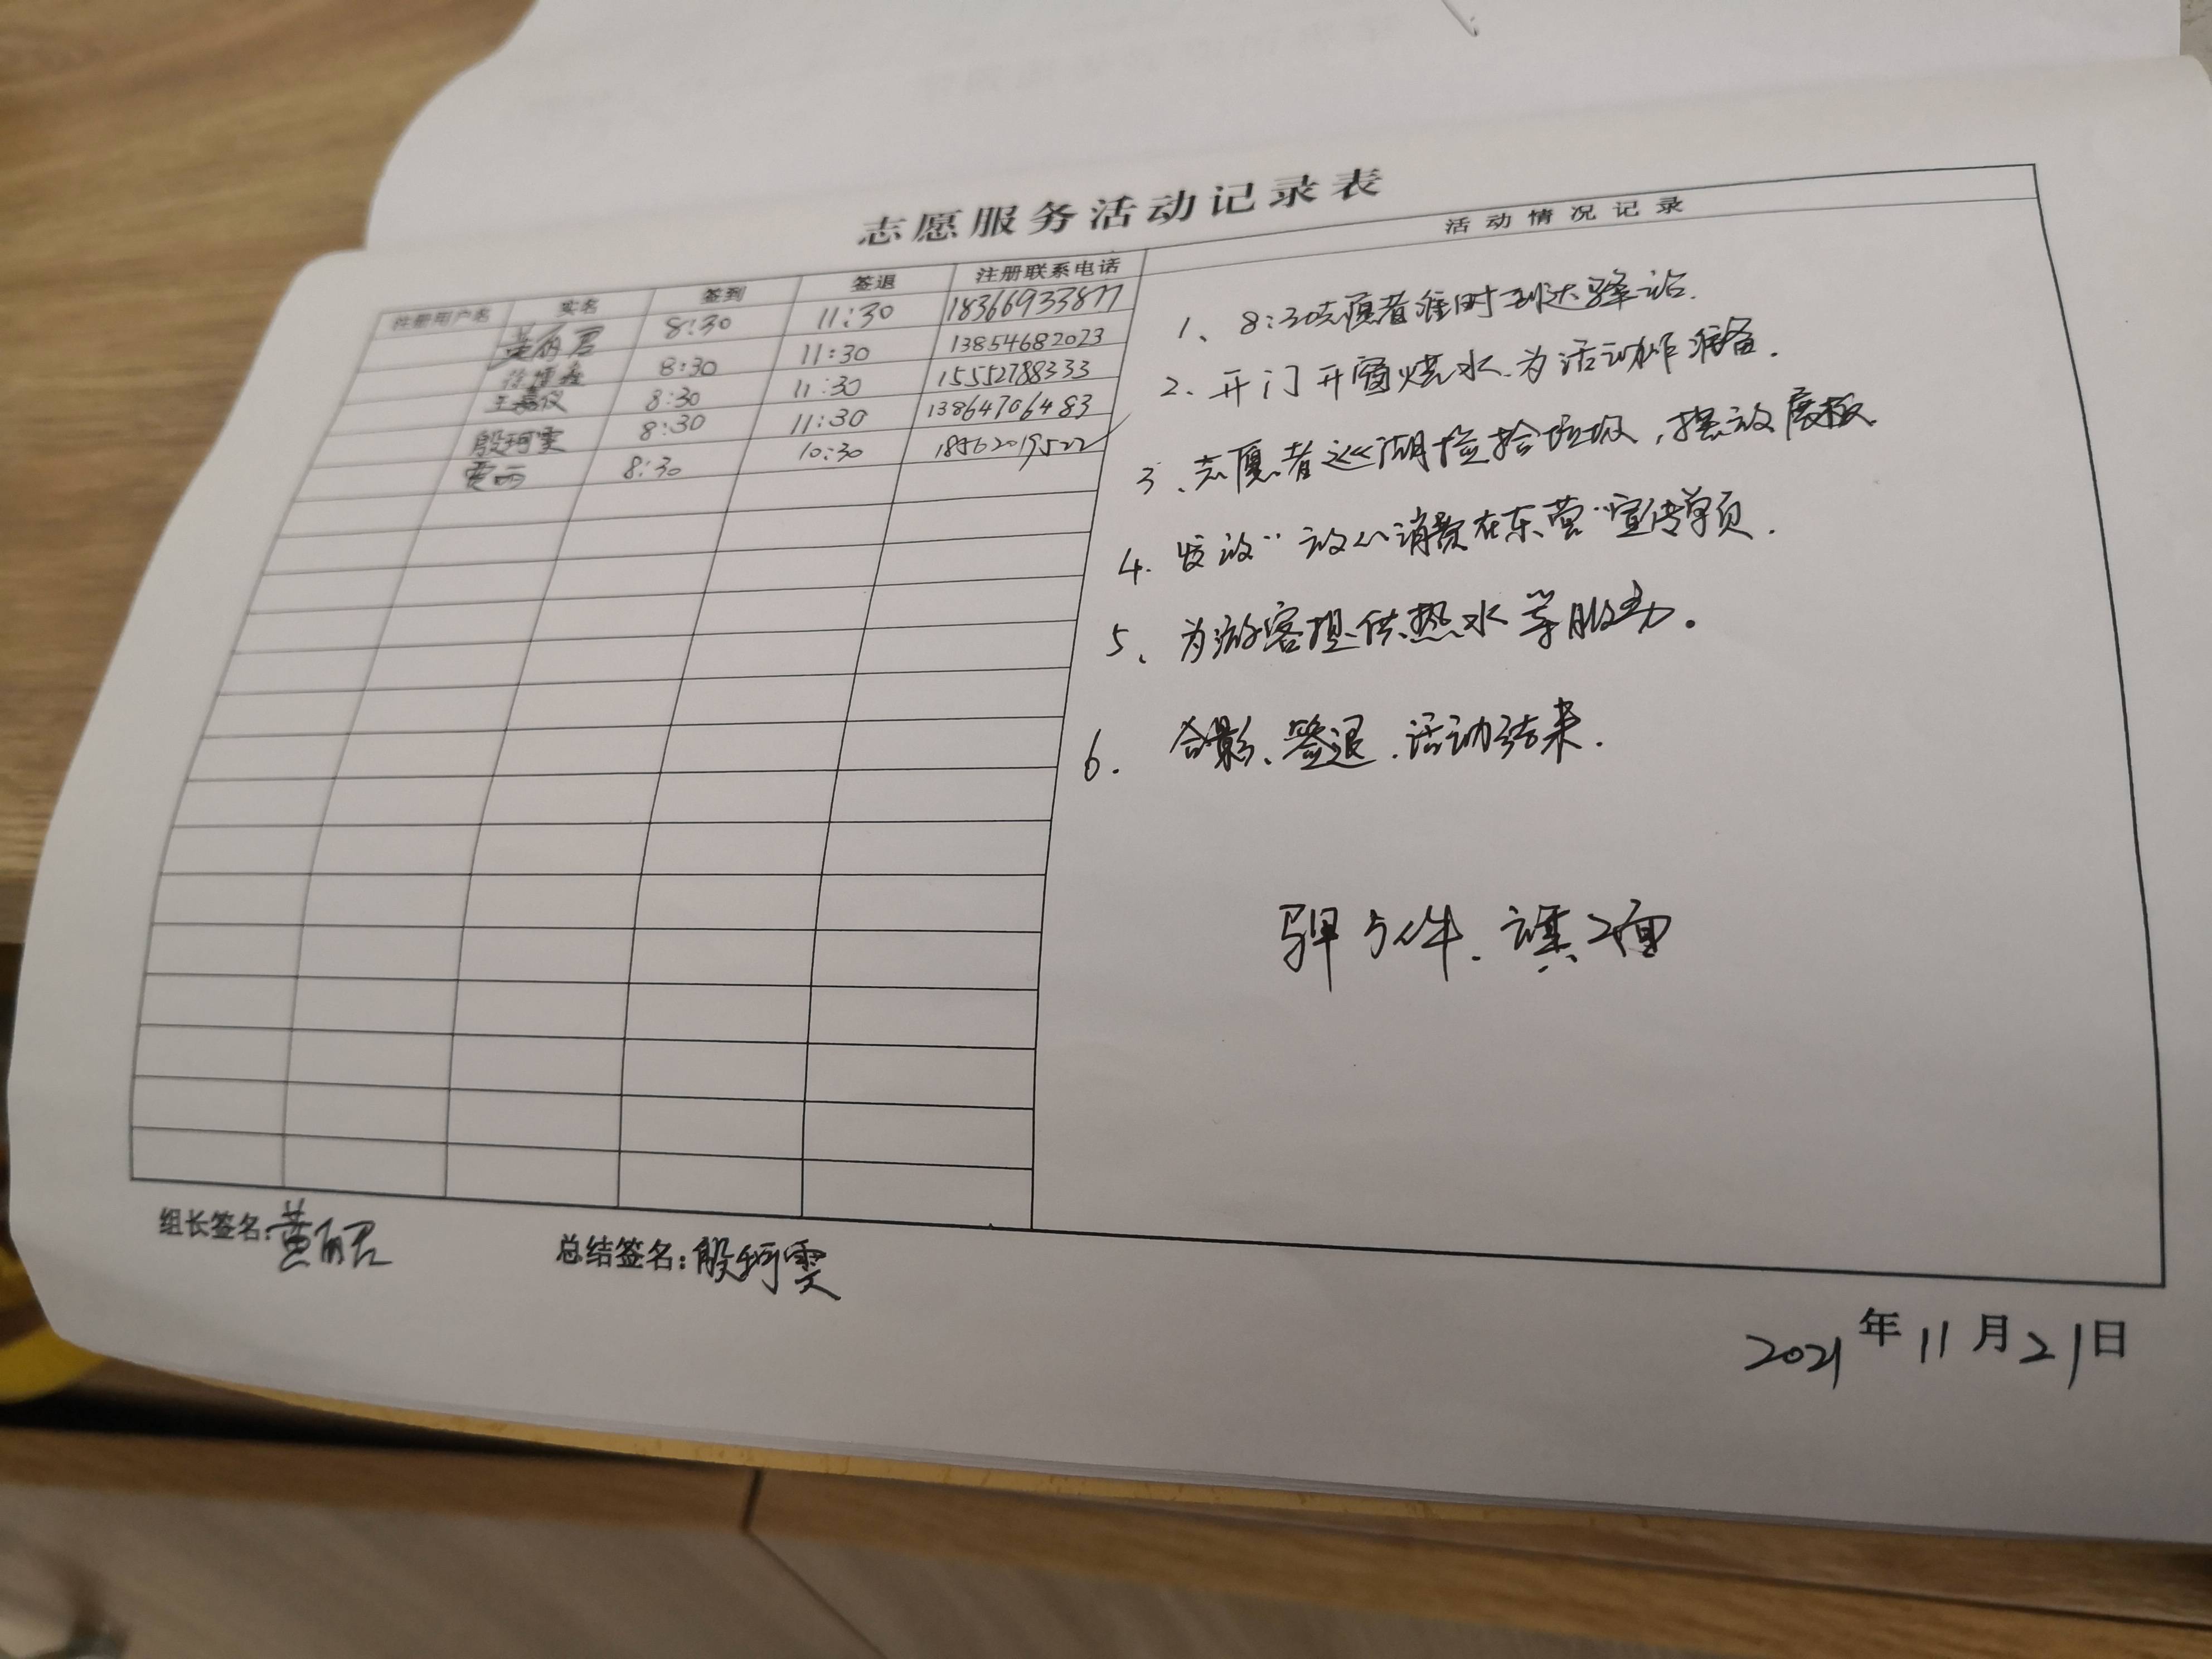 志愿服务活动记录表
注册用户名 实名 签到 签退 注册联系电话 活动情况记录
黄丽君 8:30 11:30 18366933877
8:30 11:30 13854682023
王嘉仪 8:30 11:30 15552788333
殷珂雯 8:30 11:30 13864706483
8:30 10:30 18562019522
1、8:30志愿者准时到达驿站.
2、开门开窗烧水.为活动作准备.
3、志愿者巡湖捡拾垃圾,摆放展板.
4. 发放“放心消费在东营”宣传单页.
5、为游客提供热水等服务。
6. 合影、签退.活动结束.
马甲5件.旗2面
组长签名:黄丽君 总结签名:殷珂雯
2021年11月21日